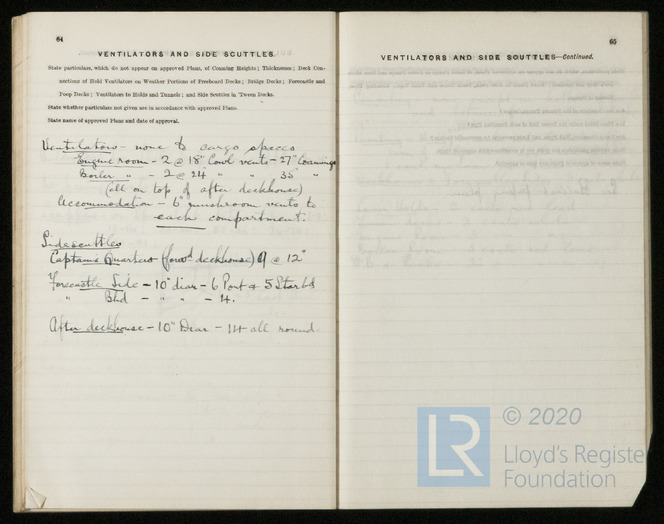 64
VENTILATORS AND SIDE SCUTTLES.
State particulars, which do not appear on approved Plans, of Coaming Heights; Thicknesses; Deck Con-
nections of Hold Ventilators on Weather Portions of Freeboard Decks; Bridge Decks; Forecastle and
Poop Decks; Ventilators to Holds and Tunnels; and Side Scuttles in 'Tween Decks.
State whether particulars not given are in accordance with approved Plans.
State name of approved Plans and date of approval.
Ventilators - none to cargo spaces
Engine room - 2 @ 18" Cowl vents - 27" Coamings
Boiler " - 2 @ 24 " " 35 "
(all on top of after deckhouse)
Accommodation - 6" mushroom vents to
each compartment.
Sidescuttles
Captains Quarters (forwd deckhouse) 9 @ 12"
Forecastle Side - 10" diar - 6 Port & 5 Starbd
" Bhd - " " - 4.
After deckhouse - 10" Diar - 14 all round.
65
VENTILATORS AND SIDE SCUTTLES—Continued.
LR
© 2020
Lloyd's Register
Foundation